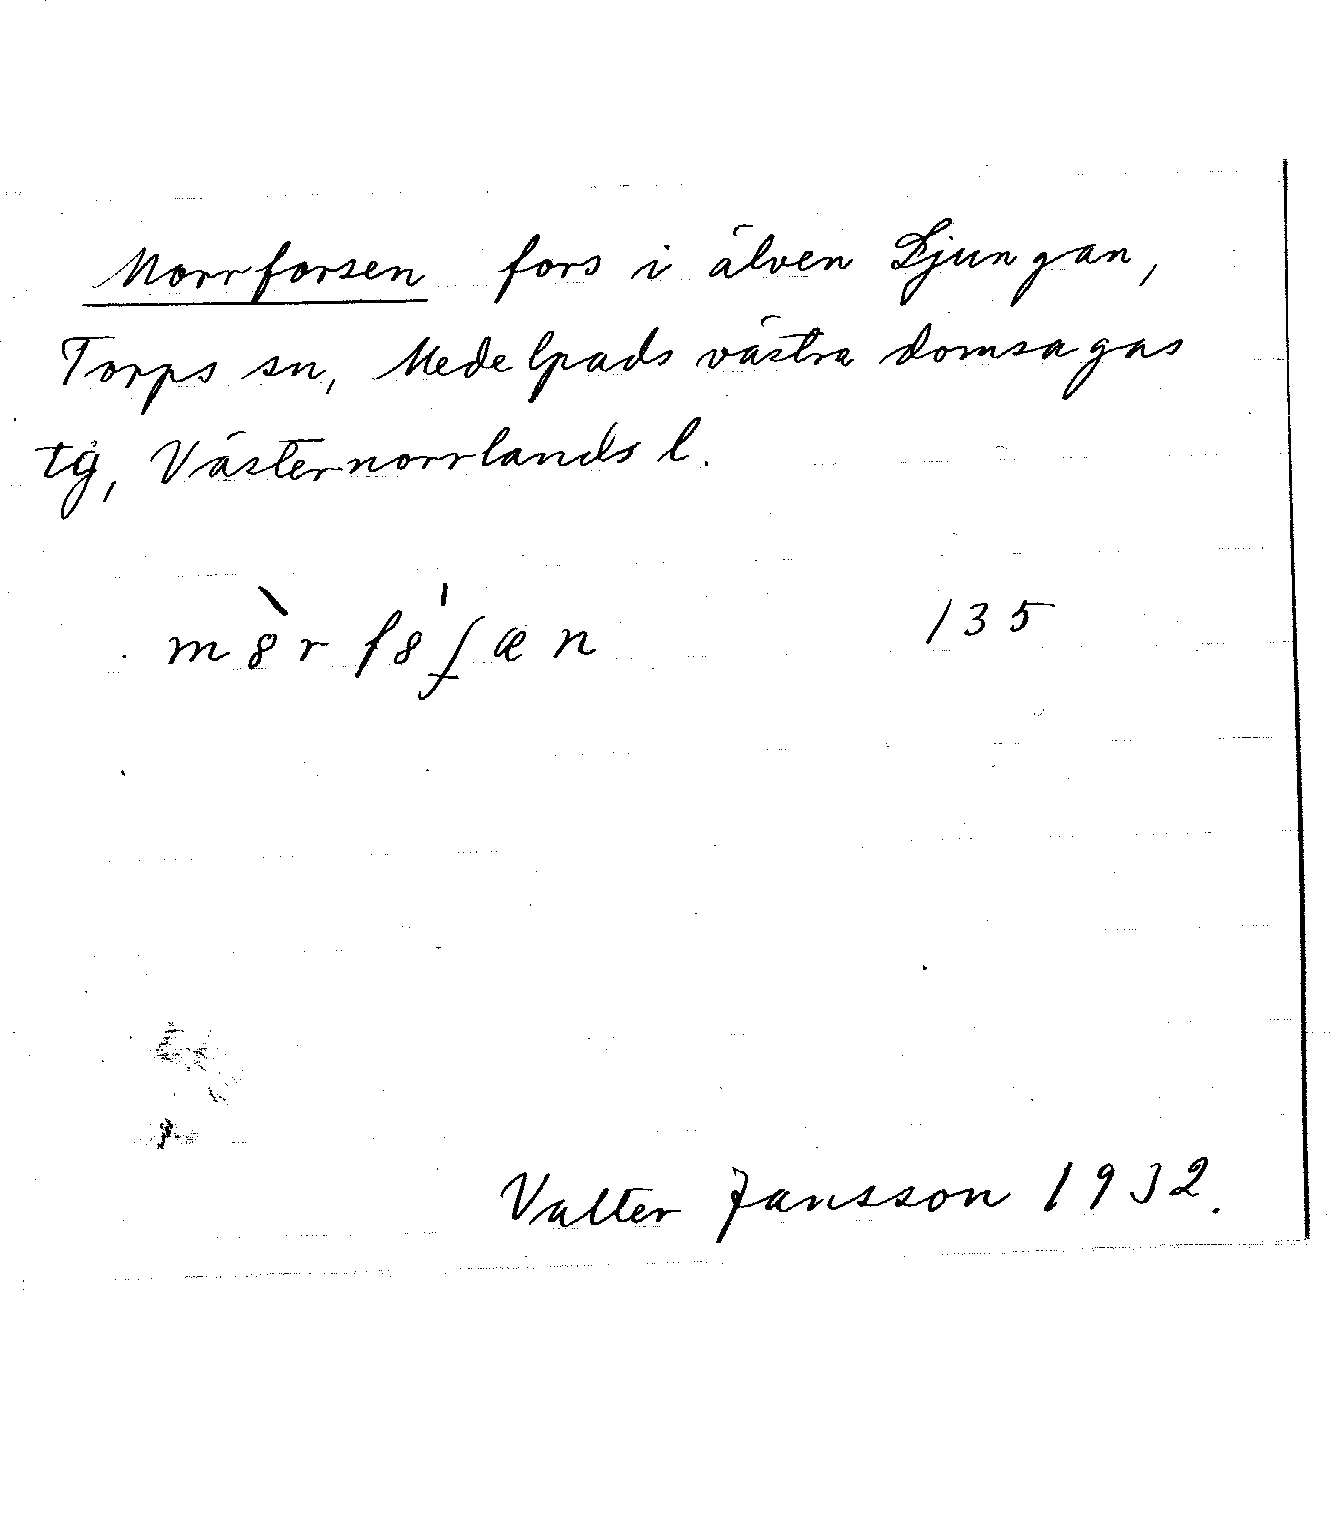 Norrforsen fors i älven Ljungan,
Torps sn, Medelpads västra domsagas
tg, Västernorrlands l.
m8̀rf8ʃæn 135
Valter Jansson 1932.